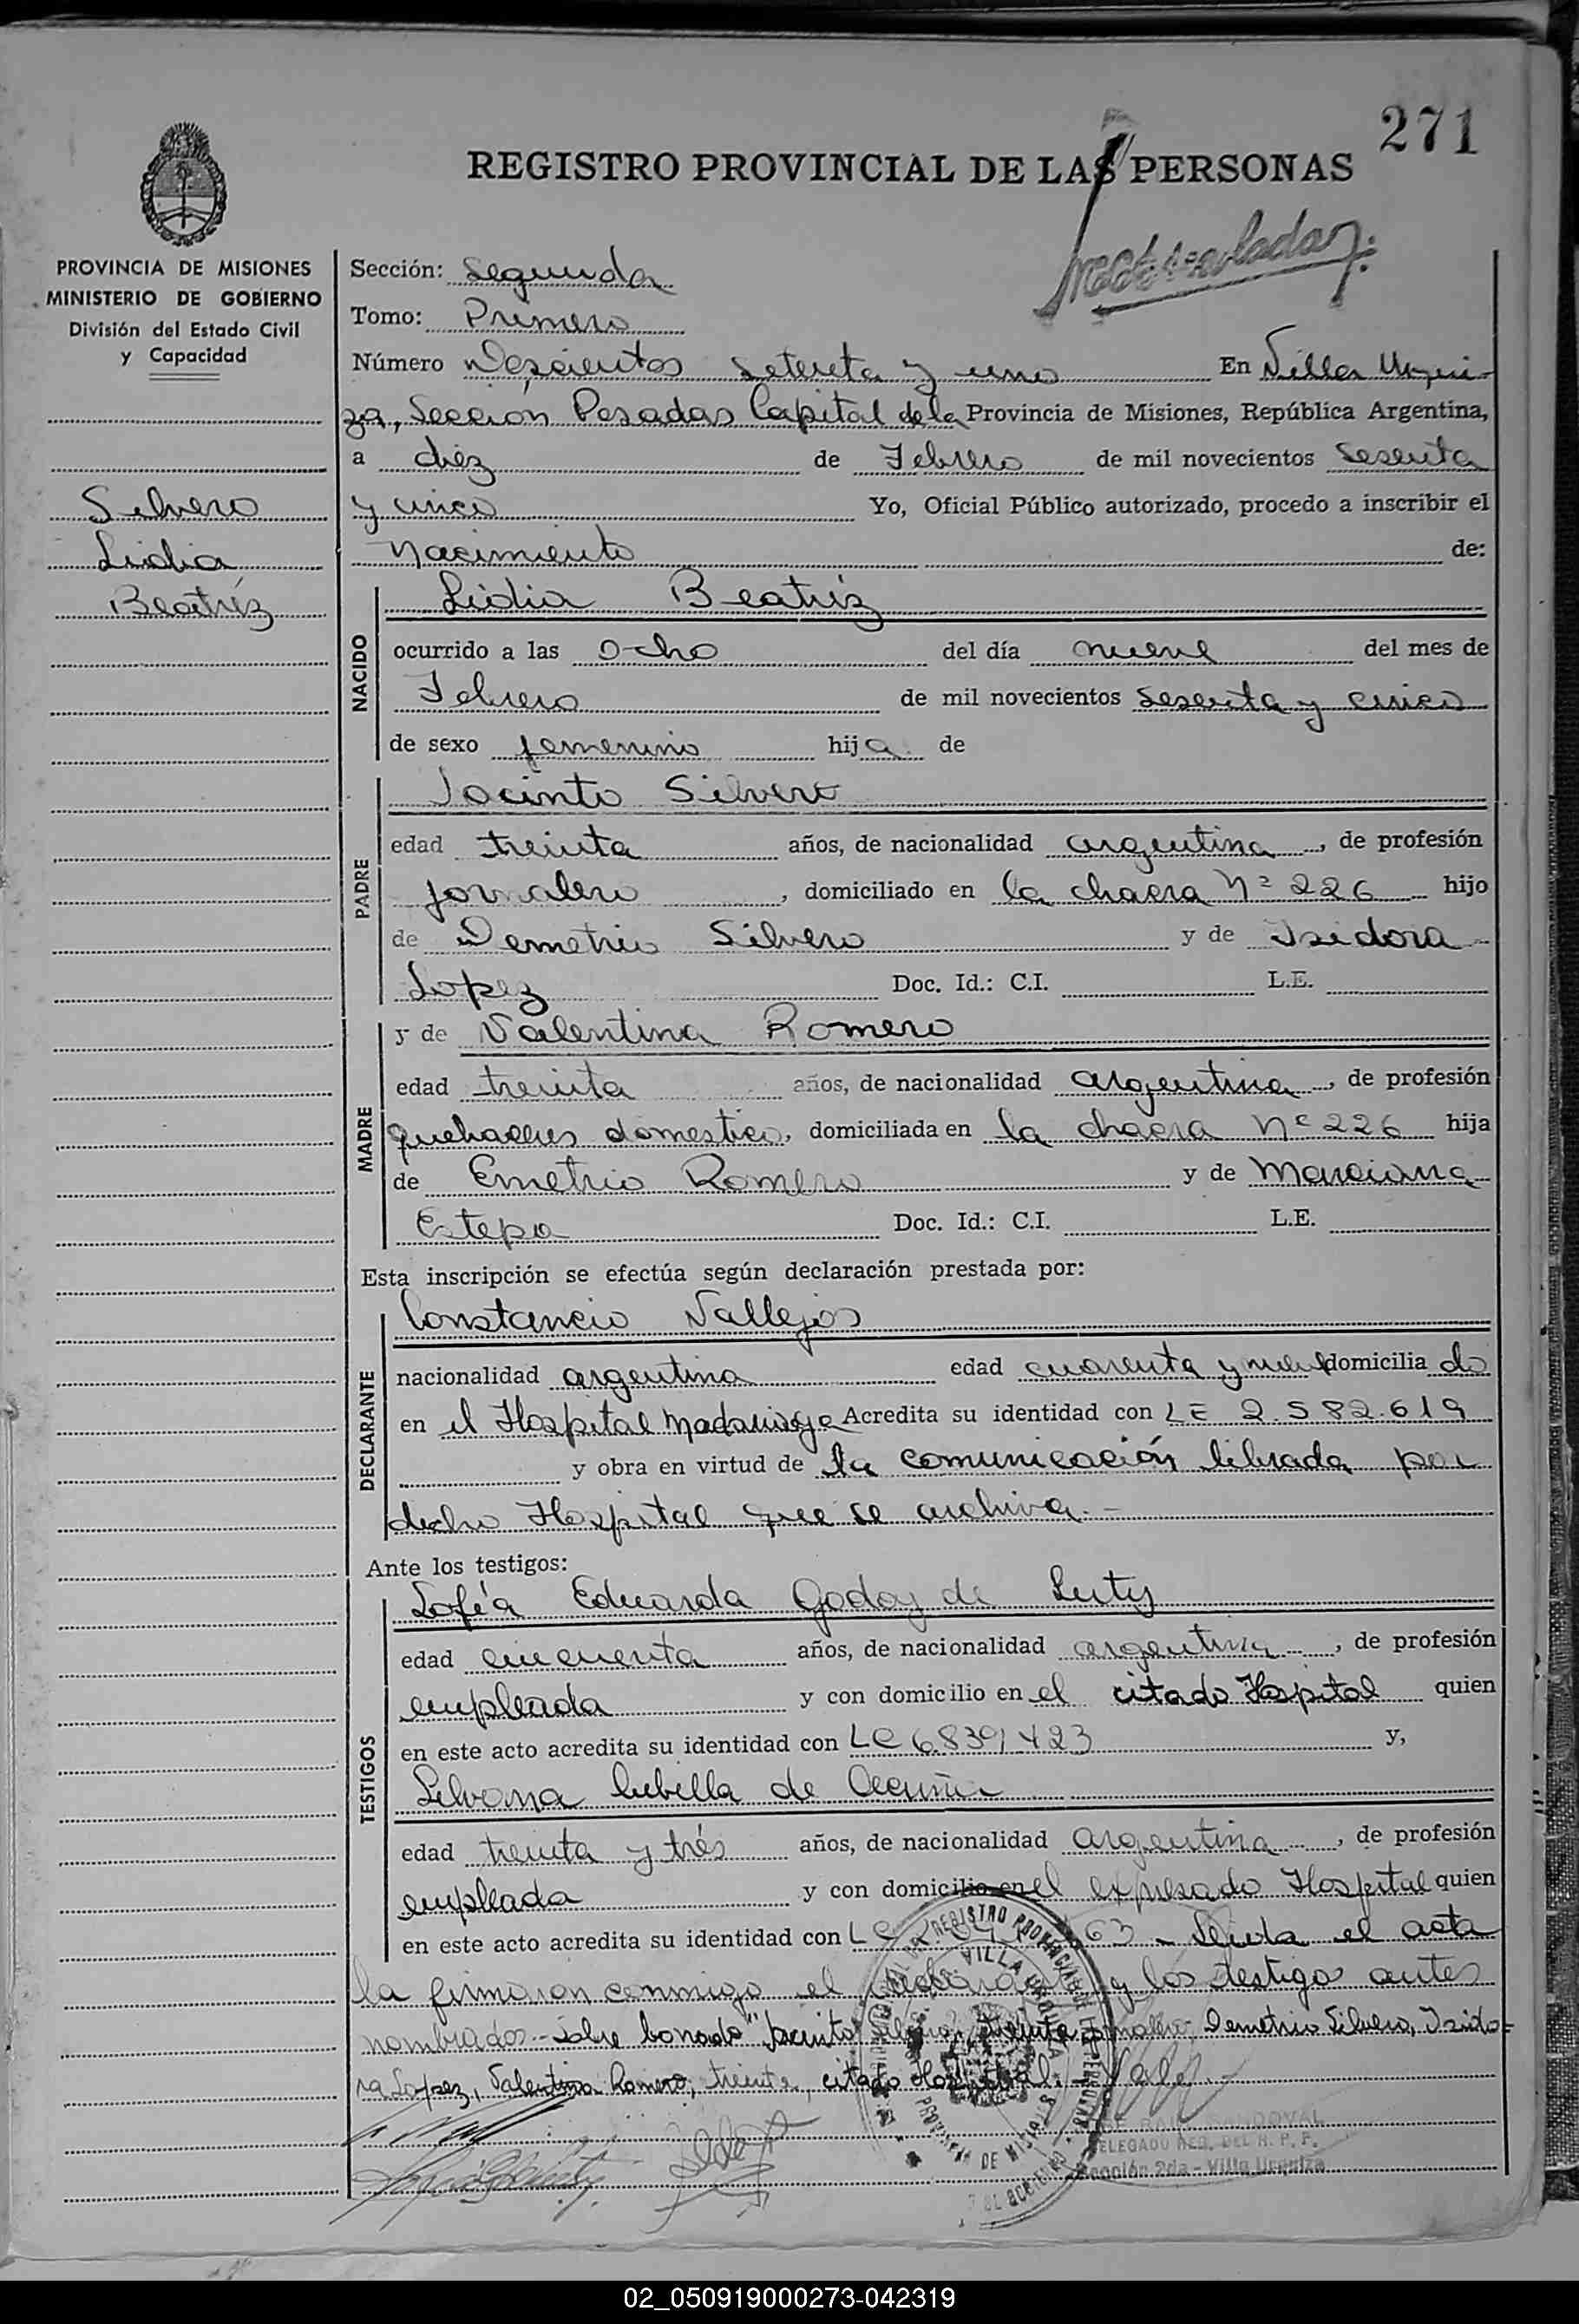 271
REGISTRO PROVINCIAL DE LAS PERSONAS
PROVINCIA DE MISIONES
MINISTERIO DE GOBIERNO
División del Estado Civil
y Capacidad
Silvero
Lidia
Beatríz
Sección: Segunda
Tomo: Primero
Número Doscientos setenta y uno En Villa Urqui-
za, Sección Posadas Capital de la Provincia de Misiones, República Argentina,
a diez de Febrero de mil novecientos sesenta
y cinco Yo, Oficial Público autorizado, procedo a inscribir el
nacimiento de:
NACIDO
Lidia Beatriz
ocurrido a las ocho del día nueve del mes de
Febrero de mil novecientos sesenta y cinco
de sexo femenino hija de
PADRE
Jacinto Silvero
edad treinta años, de nacionalidad argentina, de profesión
jornalero, domiciliado en la chacra Nº 226 hijo
de Demetrio Silvero y de Isidora
Lopez Doc. Id.: C.I. L.E.
MADRE
y de Valentina Romero
edad treinta años, de nacionalidad argentina, de profesión
quehaceres domestico, domiciliada en la chacra Nº 226 hija
de Emetrio Romero y de Marciana
Estepa Doc. Id.: C.I. L.E.
Esta inscripción se efectúa según declaración prestada por:
DECLARANTE
Constancio Vallejos
nacionalidad argentina edad cuarenta y domicilia do
en el Hospital Madariaga Acredita su identidad con LE 2.582.619
y obra en virtud de la comunicación librada por
dicho Hospital que se archiva.-
Ante los testigos:
TESTIGOS
Sofía Eduarda Godoy de
edad cincuenta años, de nacionalidad argentina, de profesión
empleada y con domicilio en el citado Hospital quien
en este acto acredita su identidad con LC y,
Silvana Cubilla de Acuña
edad treinta y trés años, de nacionalidad argentina, de profesión
empleada y con domicilio en el expresado Hospital quien
en este acto acredita su identidad con LC 63 - Leida el acta
la firmaron conmigo el y los testigos antes
nombrados.- Sobre borrado "Jacinto treinta Demetrio Silvero, Isido-
ra Lopez, Valentina Romero, treinta, citado Hospital: Vale.-
SANDOVAL
DELEGADO REG. DEL R. P. P.
Sección 2da - Villa Urquiza
02_050919000273-042319